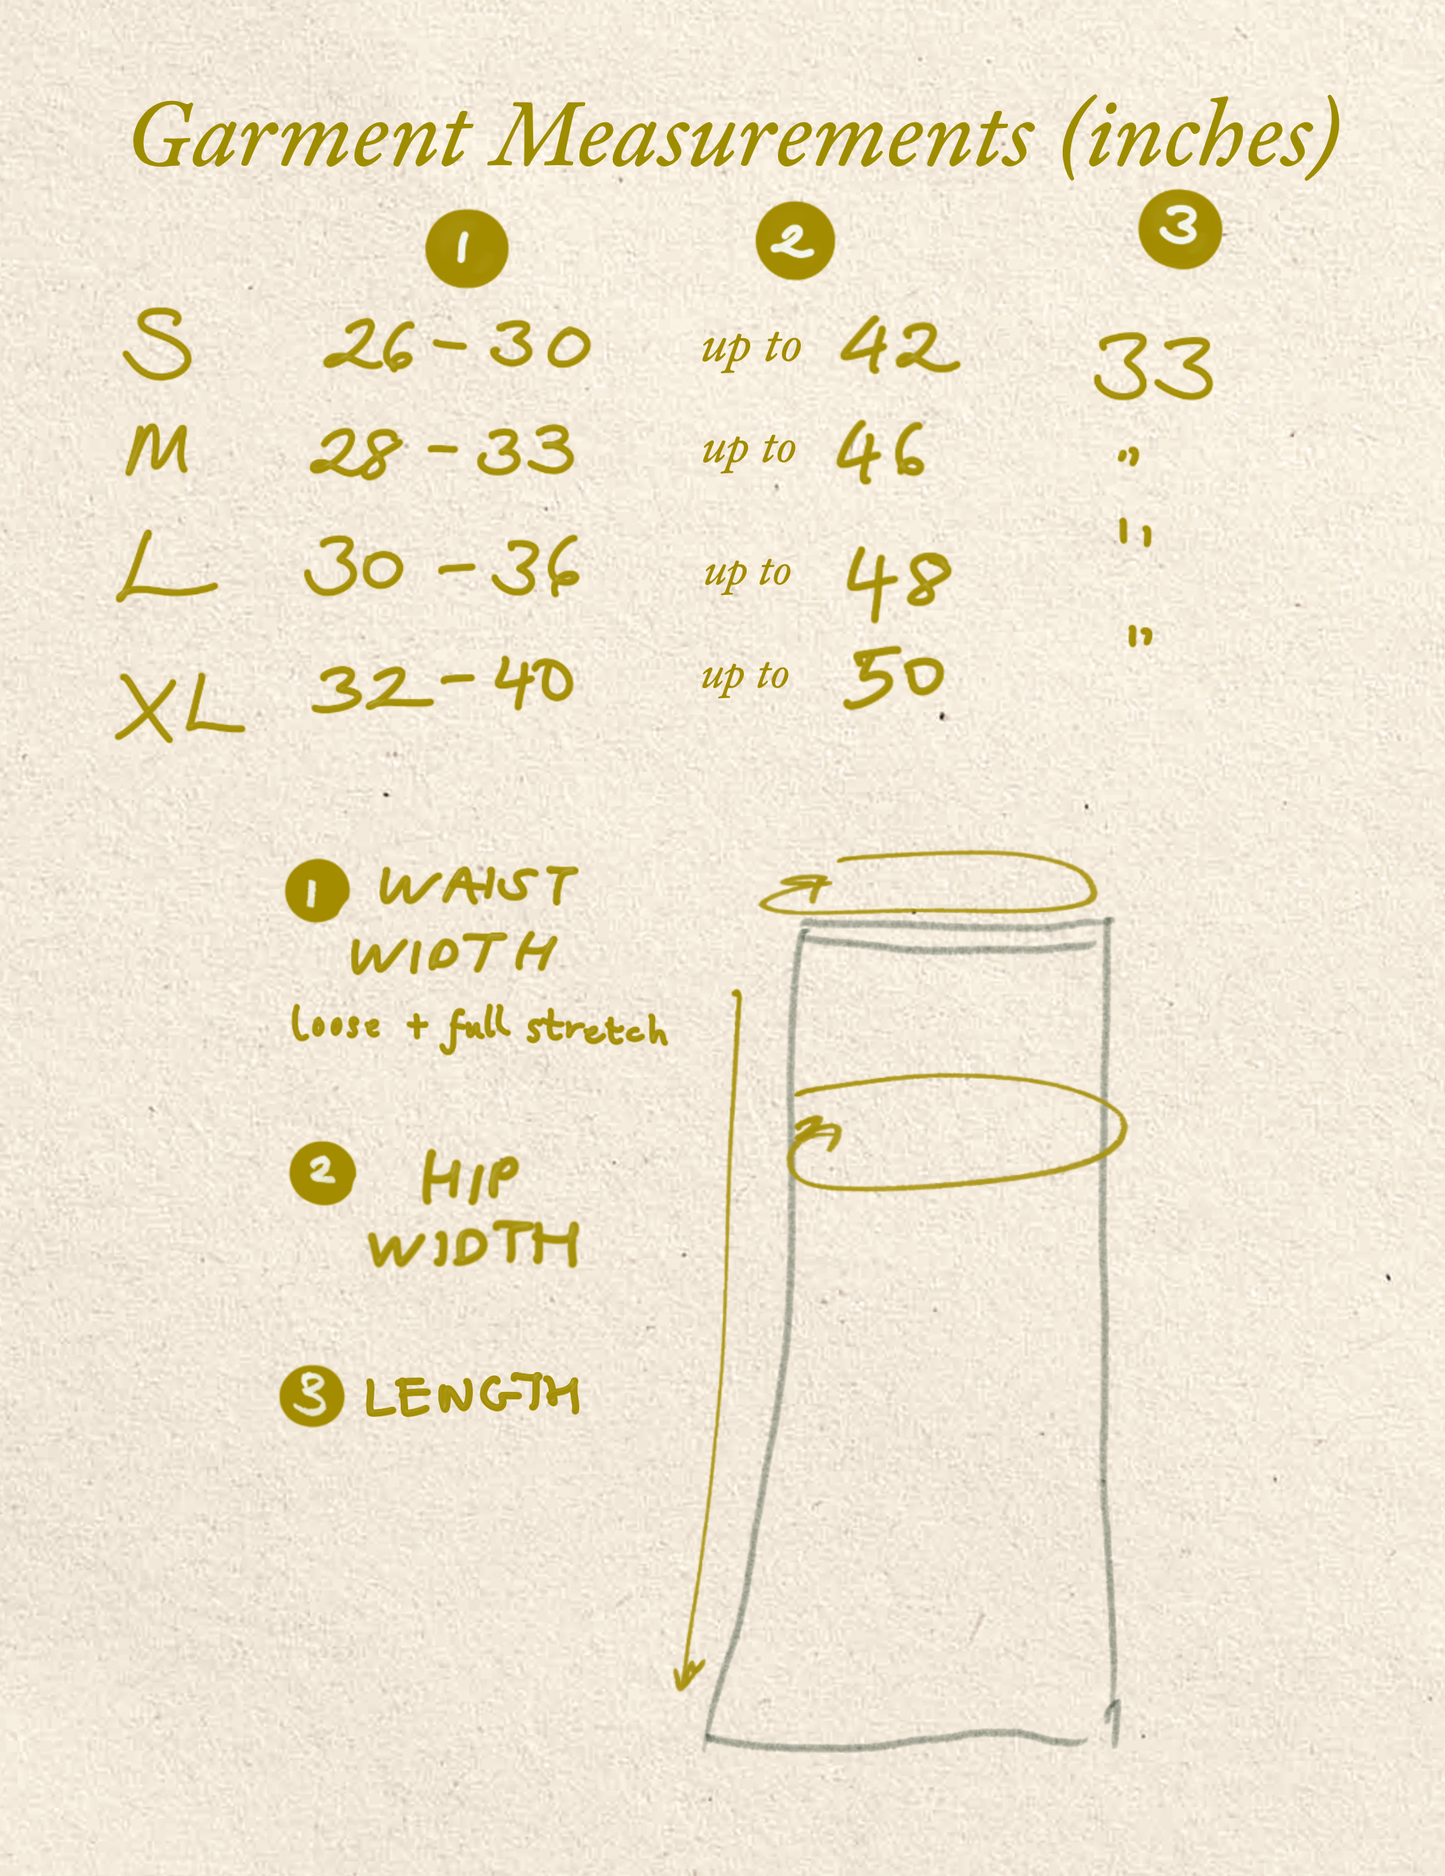 Garment Measurements (inches)
1 2 3
S 26-30 up to 42 33
M 28-33 up to 46 "
L 30-36 up to 48 "
XL 32-40 up to 50 "
1 WAIST
WIDTH
loose + full stretch
2 HIP
WIDTH
3 LENGTH